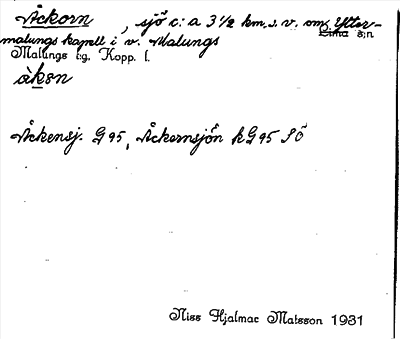 Åckorn, sjö c:a 3½ km. s. v. om Ytter-
malungs kapell i v. Malungs Lima s:n
Malungs tg. Kopp. l.
åkɘn
Åckensj. G 95, Åckernsjön kG 95 SÖ
Niss Hjalmar Matsson 1931